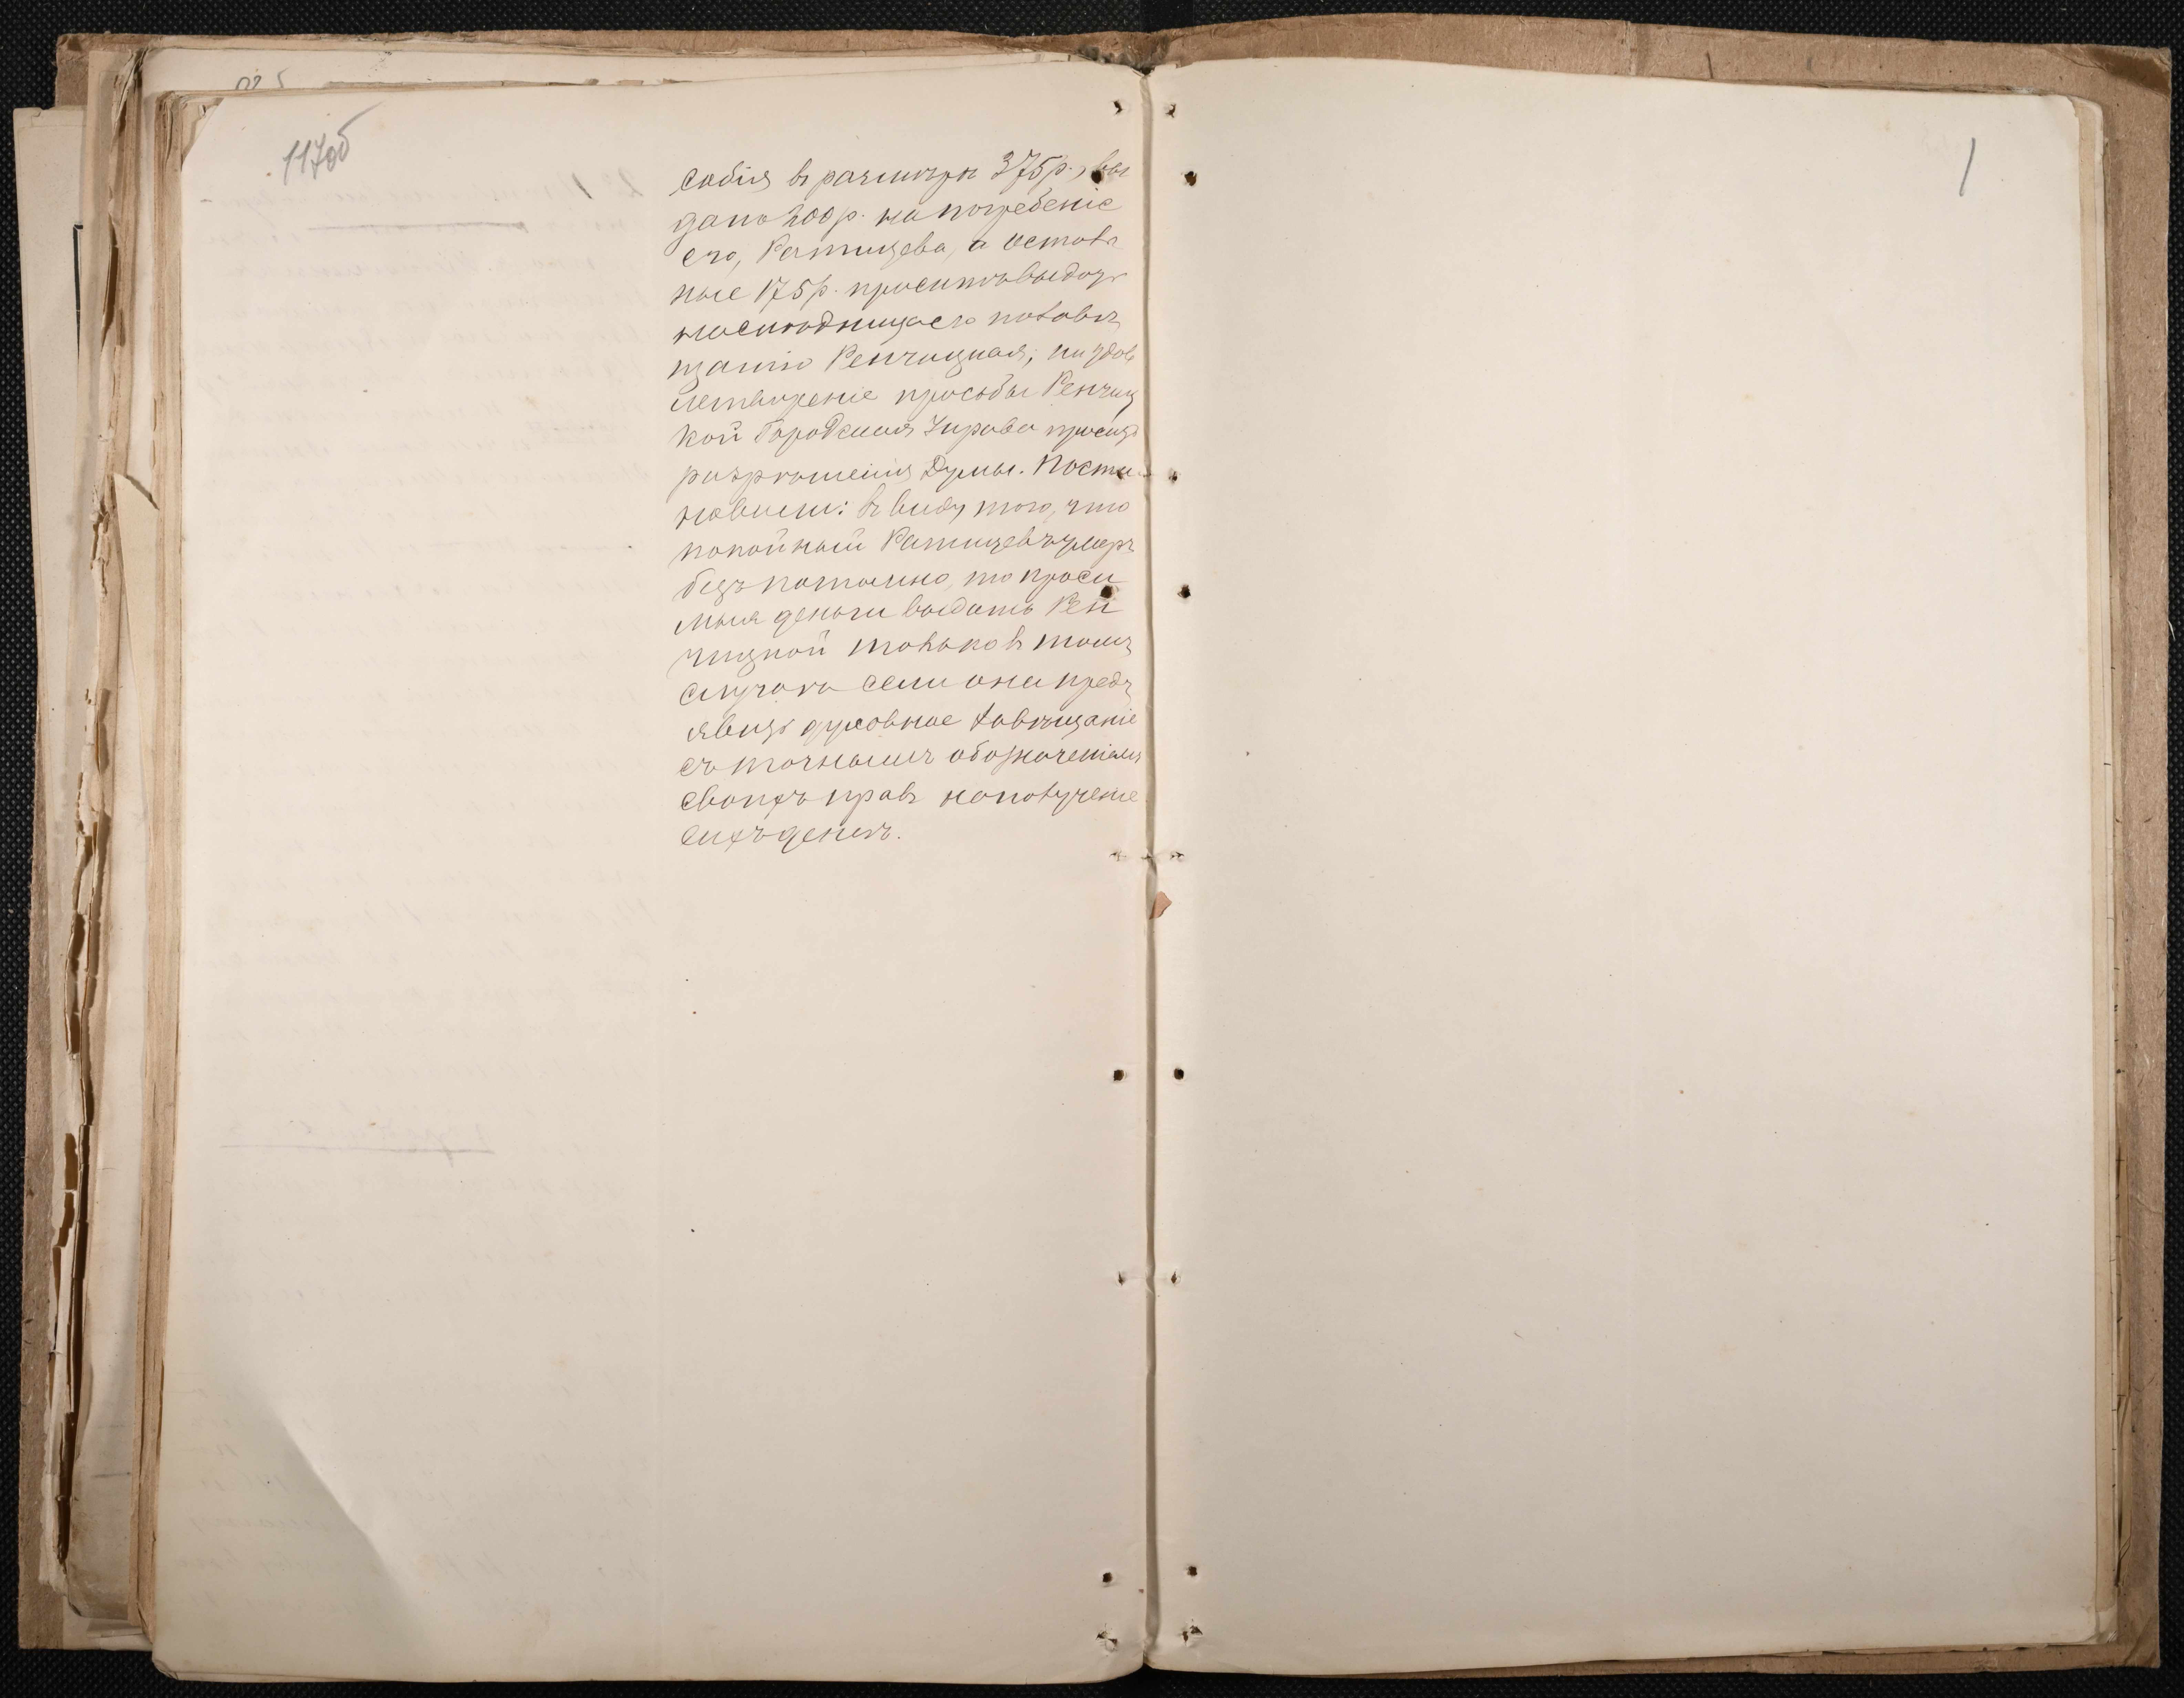 117об
собія въ размѣрѣ 375 р., вы
дано 200 р. на погребеніе
его, Ратищева, а остал
ные 175 р. проситъ выдать
наслѣдница его по завѣ
щанію Ренчицкая; на удов
летвореніе просьбы Ренчиц
кой Городская Управа проситъ
разрѣшенія Думы. Поста
новили: въ виду того, что
покойный Ратищевъ умеръ
безъпотомно, то проси
мыя деньги выдать Рен
чицкой только въ томъ
случаѣ если она предъ
явитъ духовное завѣщаніе
съ точнымъ обозначеніемъ
своихъ правъ на полученіе
сихъ денегъ.